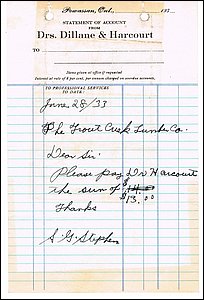 Powassan, Ont., 193
STATEMENT OF ACCOUNT
FROM
Drs. Dillane & Harcourt
TO
Hours given at office if requested
Interest at rate of 8 per cent. per annum charged on overdue accounts.
TO PROFESSIONAL SERVICES
TO DATE:
June 28/33
The Trout Creek Lumber Co.
Dear Sir
Please pay Dr Harcourt
the sum of $14.00
$13.00
Thanks
S. G. Stephen